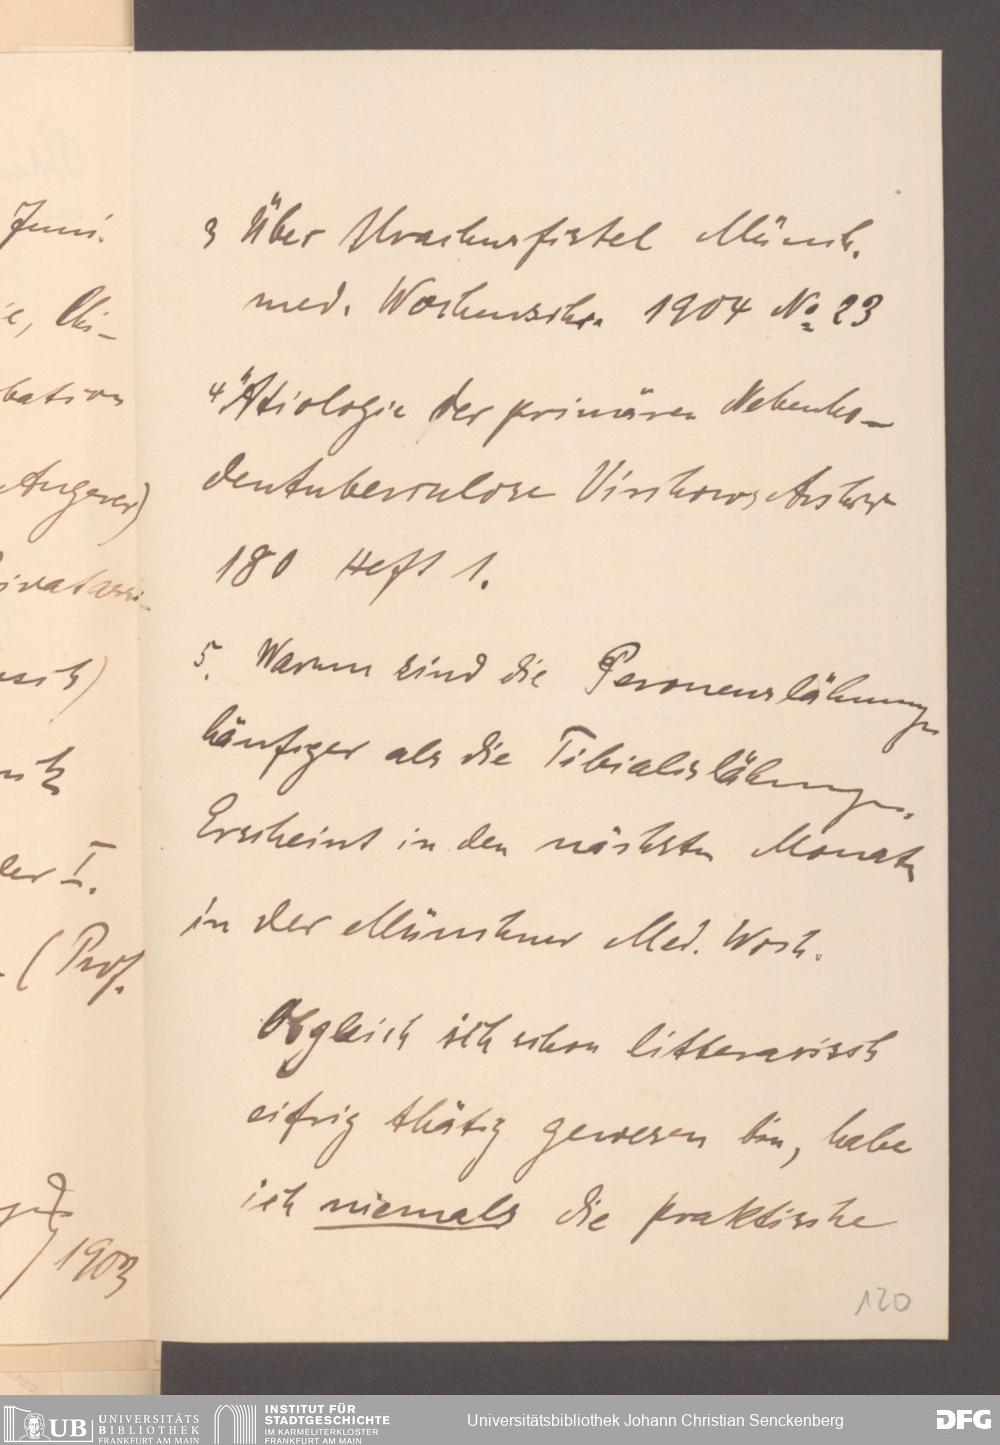 Juni.
Chi-
bation
Angerer)
ivatassi-
der I.
(Prof.
1903
3 Über Urachusfistel Münch.
med. Wochenschr. 1904 No 23
4 Ätiologie der primären Nebenho-
dentuberculose Virchows Archiv
180 Heft 1.
5. Warum sind die Peroneuslähmungen
häufiger als die Tibialislähmungen.
Erscheint in den nächsten Monaten
in der Münchner Med. Woch.
Obgleich ich schon litterarisch
eifrig thätig gewesen bin, habe
ich niemals die praktische
120
UB UNIVERSITÄTS
BIBLIOTHEK
FRANKFURT AM MAIN
INSTITUT FÜR
STADTGESCHICHTE
IM KARMELITERKLOSTER
FRANKFURT AM MAIN
Universitätsbibliothek Johann Christian Senckenberg
DFG